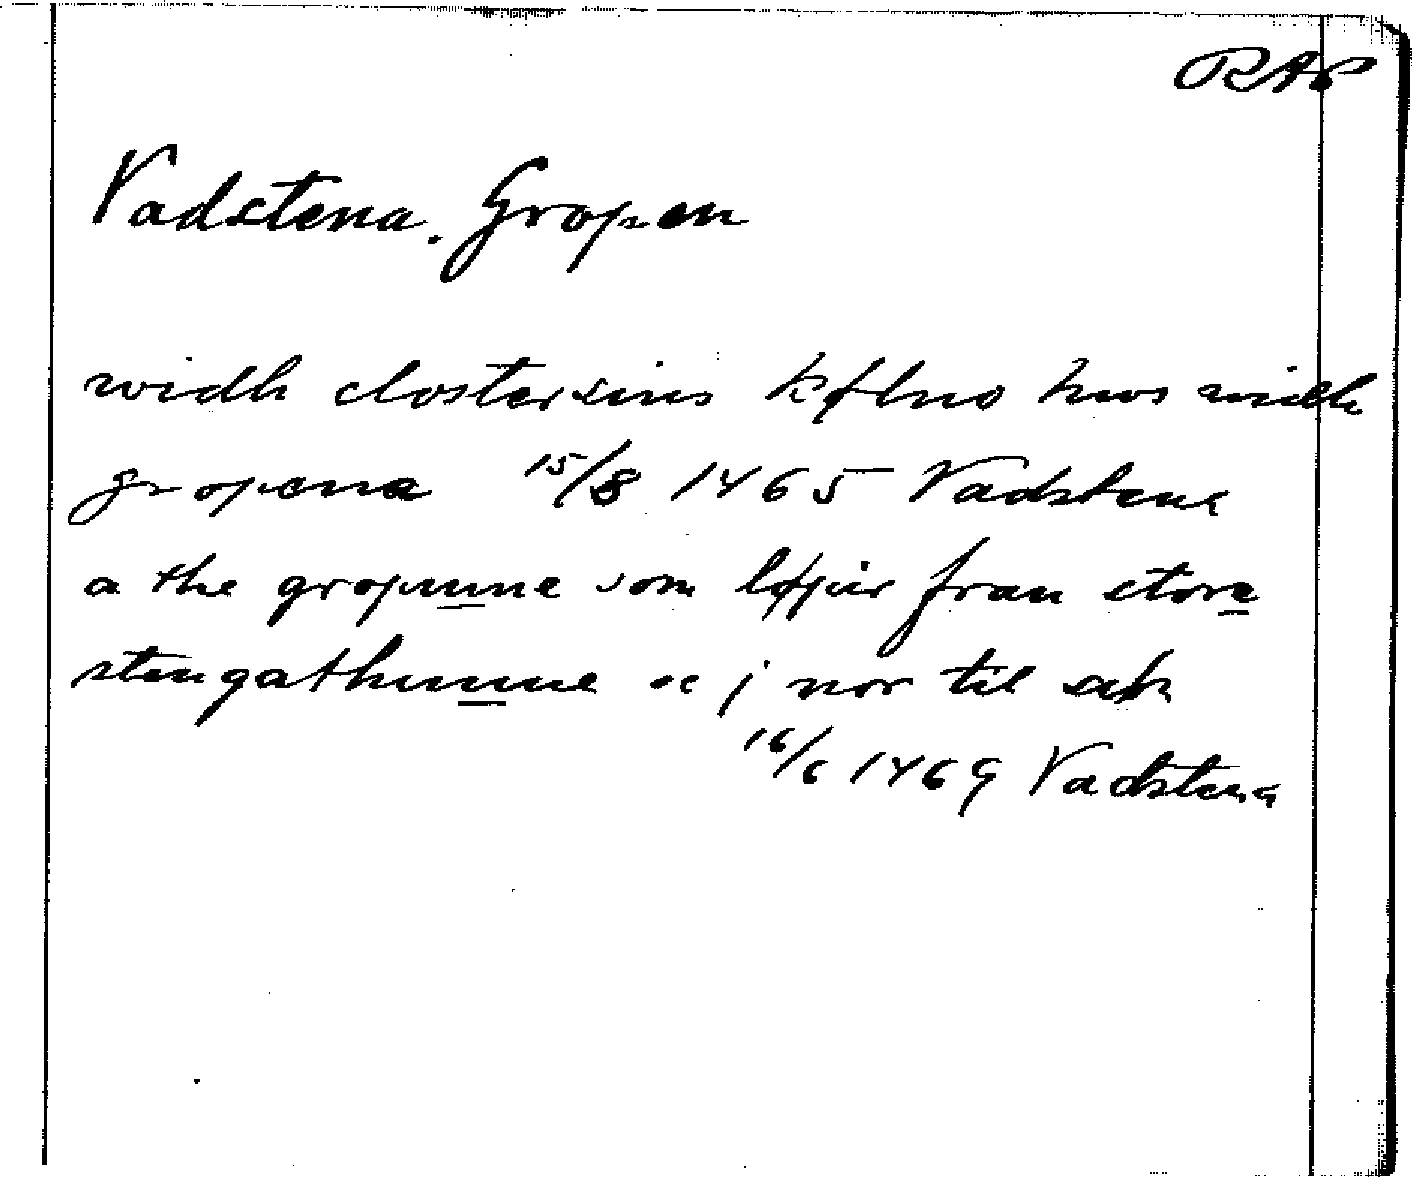 RAP
Vadstena. Gropen
widh clostersins kølno hws widh
gropena 15/8 1465 Vadstena
a the gropunne som løpir fran store
stengathunne oc j nor til sæk
16/6 1469 Vadstena